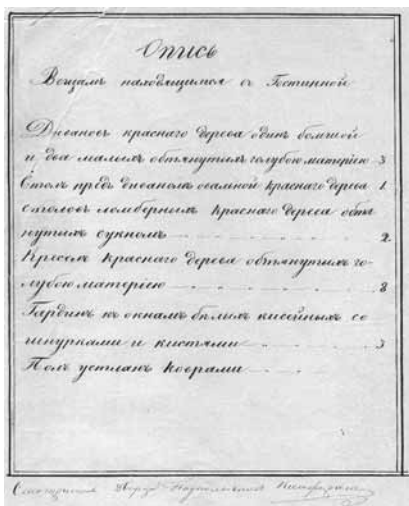 Опись
Вещамъ находящимся въ Гостинной
Дивановъ краснаго дерева одинъ большой
и два малыхъ обтянутыхъ голубою матеріею 3
Столъ предъ диваномъ овальной краснаго дерева 1.
Столовъ ломберныхъ краснаго дерева обтя
нутыхъ сукномъ 2.
Креселъ краснаго дерева обтянутыхъ го-
лубою матеріею 8
Гардинъ къ окнамъ бѣлыхъ кисейныхъ со
шнурками и кистями 3
Полъ устланъ коврами
Смотритель